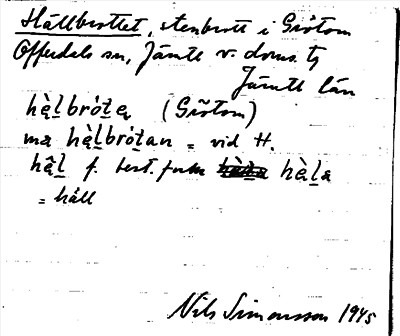 Hällbrottet, stenbrott i Grötom
Offerdals sn, Jämtl. v. doms. tg
Jämtl. län
hèl̲brót̲ɐ (Grötom)
ma hèl̲brót̲an = vid H.
hêl̲ f. best. form hèl̲a
= häll
Nils Simonsson 1945